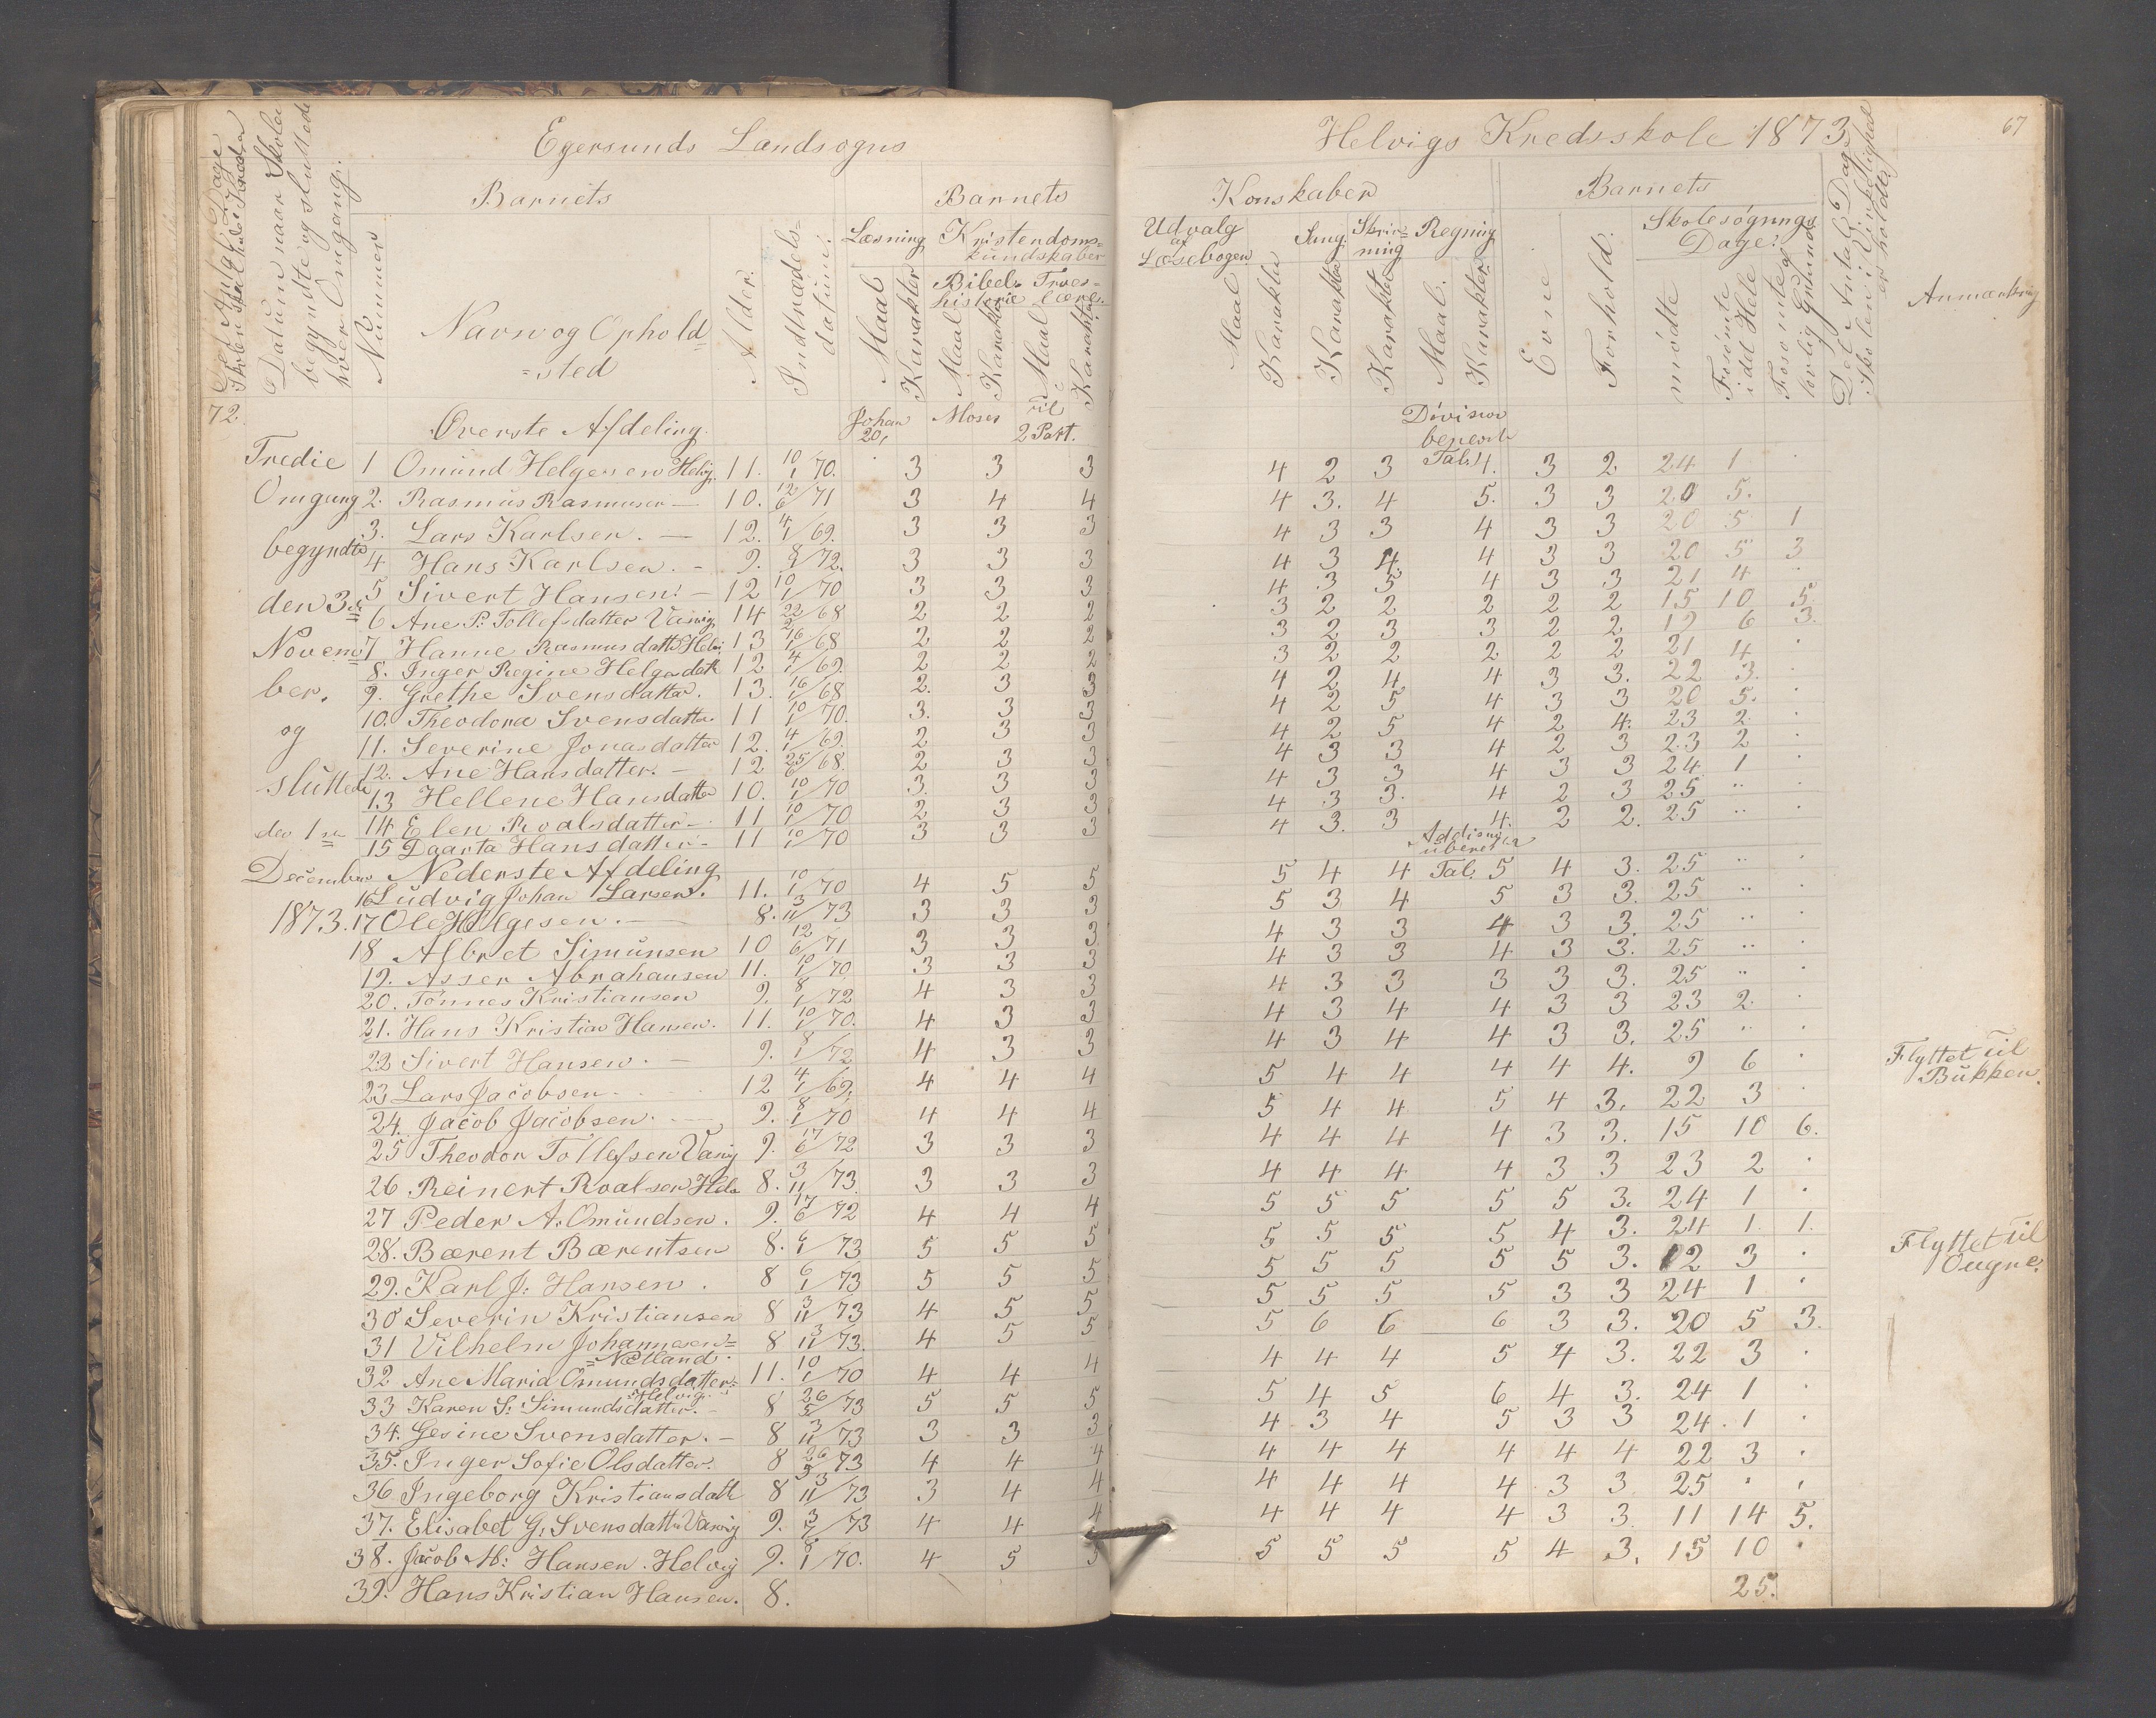 Egersunds Landsogns
Barnets
Barnets
Nummer
Navn og Ophold=
=sted
Alder.
Indtrædels=
datum.
Læsning
Maal
Karakter
Kristendoms=
kundskaber
Bibel=
historie
Maal
Karakter
Troes=
lære.
Maal
Karakter
Datum naar Skolen
begyndte og sluttede
hver Omgang.
72.
Overste Afdeling.
Johan
20,
Moses
til
2 Part.
Tredie
Omgang
begyndte
den 3die
Novem=
ber.
og
sluttede
den 1ste
December
1873.
1 Omund Helgesen Helvig. 11. 10/1 70. 3 3 3
2. Rasmus Rasmusen — 10. 12/6 71 3 4 4
3. Lars Karlsen. — 12. 4/1 69. 3 3 3
4 Hans Karlsen. - 9. 8/1 72. 3 3 3
5 Sivert Hansen. — 12 10/1 70 3 3 3
6 Ane P. Tollefsdatter Vasvig 14 22/2 68 2 2 2
7 Hanne Rasmusdatter Helv. 13 16/1 68 2 2 2
8. Inger Regine Helgesdatt 12 4/1 69. 2 2 2
9. Grethe Svensdatter. 13. 16/1 68 2. 3 3
10. Theodora Svensdatter 11 10/1 70. 3. 3 3
11. Severine Jonasdatter 12. 4/1 69. 2 3 3
12. Ane Hansdatter. — 12 25/6 68. 2 3 3
13 Hellene Hansdatter 10. 10/1 70 3. 3 3
14 Elen Roalsdatter — 11 10/1 70 2 3 3
15 Daarta Hansdatter - 11 10/1 70 3 3 3
Nederste Afdeling
16 Ludvig Johan Larsen. 11. 10/1 70 4 5 5
17 Ole Helgesen. — 8. 3/11 73 3 3 3
18 Albret Simunsen 10 12/6 71 3 3 3
19. Asser Abrahansen 11. 10/1 70 3 3 3
20. Tønnes Kristiansen 9. 8/1 72 4 3 3
21. Hans Kristian Hansen. 11. 10/1 70. 4 3 3
22 Sivert Hansen. — 9. 8/1 72 4 3 3
23 Lars Jacobsen. 12 4/1 69. 4 4 4
24. Jacob Jacobsen. 9. 8/1 70 4 4 4
25 Theodor Tollefsen Vasvig 9. 17/6 72 3 3 3
26 Reinert Roalsen Helv 8. 3/11 73. 3 3 3
27 Peder A. Omundsen. 9. 17/6 72 4 4 4
28. Bærent Bærentsen 8. 6/1 73 5 5 5
29. Karl J: Hansen. 8 6/1 73 5 5 5
30 Severin Kristiansen 8 3/11 73 4 5 5
31 Vilhelm Johannesen=
=Nætland. 8 3/11 73. 4 5 5
32 Ane Maria Omundsdatter=
=Helvig. 11. 10/1 70 4 4 4
33 Karen S: Simundsdatter. - 8 26/5 73 5 5 5
34. Gesine Svensdatter. — 8 3/11 73 3 3 3
35. Inger Sofie Olsdatter. 8 26/5 73 4 4 4
36. Ingeborg Kristiansdatt 8 3/11 73 3 4 4
37. Elisabet G. Svensdatter Vasvig 9. 3/7 73 4 4 4
38. Jacob M: Hansen. Helvig 9. 8/1 70. 4 5 5
39. Hans Kristian Hansen. 8.
Helvigs Kredsskole 1873.
67
Konskaber
Barnets
Udvalg
af
Læsebogen
Maal
Karakter
Sang.
Karakter
Skriv=
ning
Karakter
Regning
Maal.
Karakter
Evne
Forhold.
Skolesøgnings
Dage.
mødte
Forsømte
i det Hele
Forsømte af
lovlig Grund
Det Antal Dage
Skolen i Virkelighed
er holdt.
Anmærkning
Division
benevnte
Tal.
4 2 3 4. 3 2 24 1 .
4 3. 4 5. 3 3 20 5.
4 3 3 4 3 3 20 5 1
4 3 4. 4 3 3 20 5 3
4 3 5 4 3 3 21 4 .
3 2 2 2 2 2 15 10 5.
3 2 3 3 2 2 19 6 3.
3 2 2 2 2 2 21 4 .
4 2 4 4 3 3. 22 3. .
4 2 5 4 3 3 20 5. .
4 2 5 4 2 4. 23 2. .
4 3 3 4 2 3 23 2 .
4 3 3 4 3 3 24 1 .
4 3 3. 4 2 3 25 .. .
4 3. 3 4. 2 2. 25 .. .
Tal.
5 4 4 5 4 3. 25 .. .
5 3 4 5 3 3. 25 .. .
4 3 3 4 3 3. 25 .. .
4 3 3 4 3 3. 25 .. .
4 3 3 3 3 3. 25 .. .
4 3 4 4 3 3 23 2. .
4 3 4 4 3 3. 25 .. .
5 4 4 4 4 4. 9 6 . Flyttet til
Bukken.
5 4 4 5 4 3. 22 3 .
4 4 4 4 3 3. 15 10 6.
4 4 4 4 3 3 23 2 .
5 5 5 5 5 3. 24 1 .
5 5 5 5 4 3. 24 1. 1.
5 5 5 5 5 3. 12 3 . Flyttet til
Ougne.
5 5 5 5 3 3 24 1 .
5 6 6 6 3 3. 20 5 3.
4 4 4 5 4 3. 22 3 .
5 4 5 6 4 3. 24 1 .
4 3 4 5 3 3 24. 1 .
4 4 4 4 4 4 22 3 .
4 4 4 4 3 3 25 . .
4 4 4 4 3 3. 11 14 5.
5 5 5 5 4 3. 15 10 .
25.